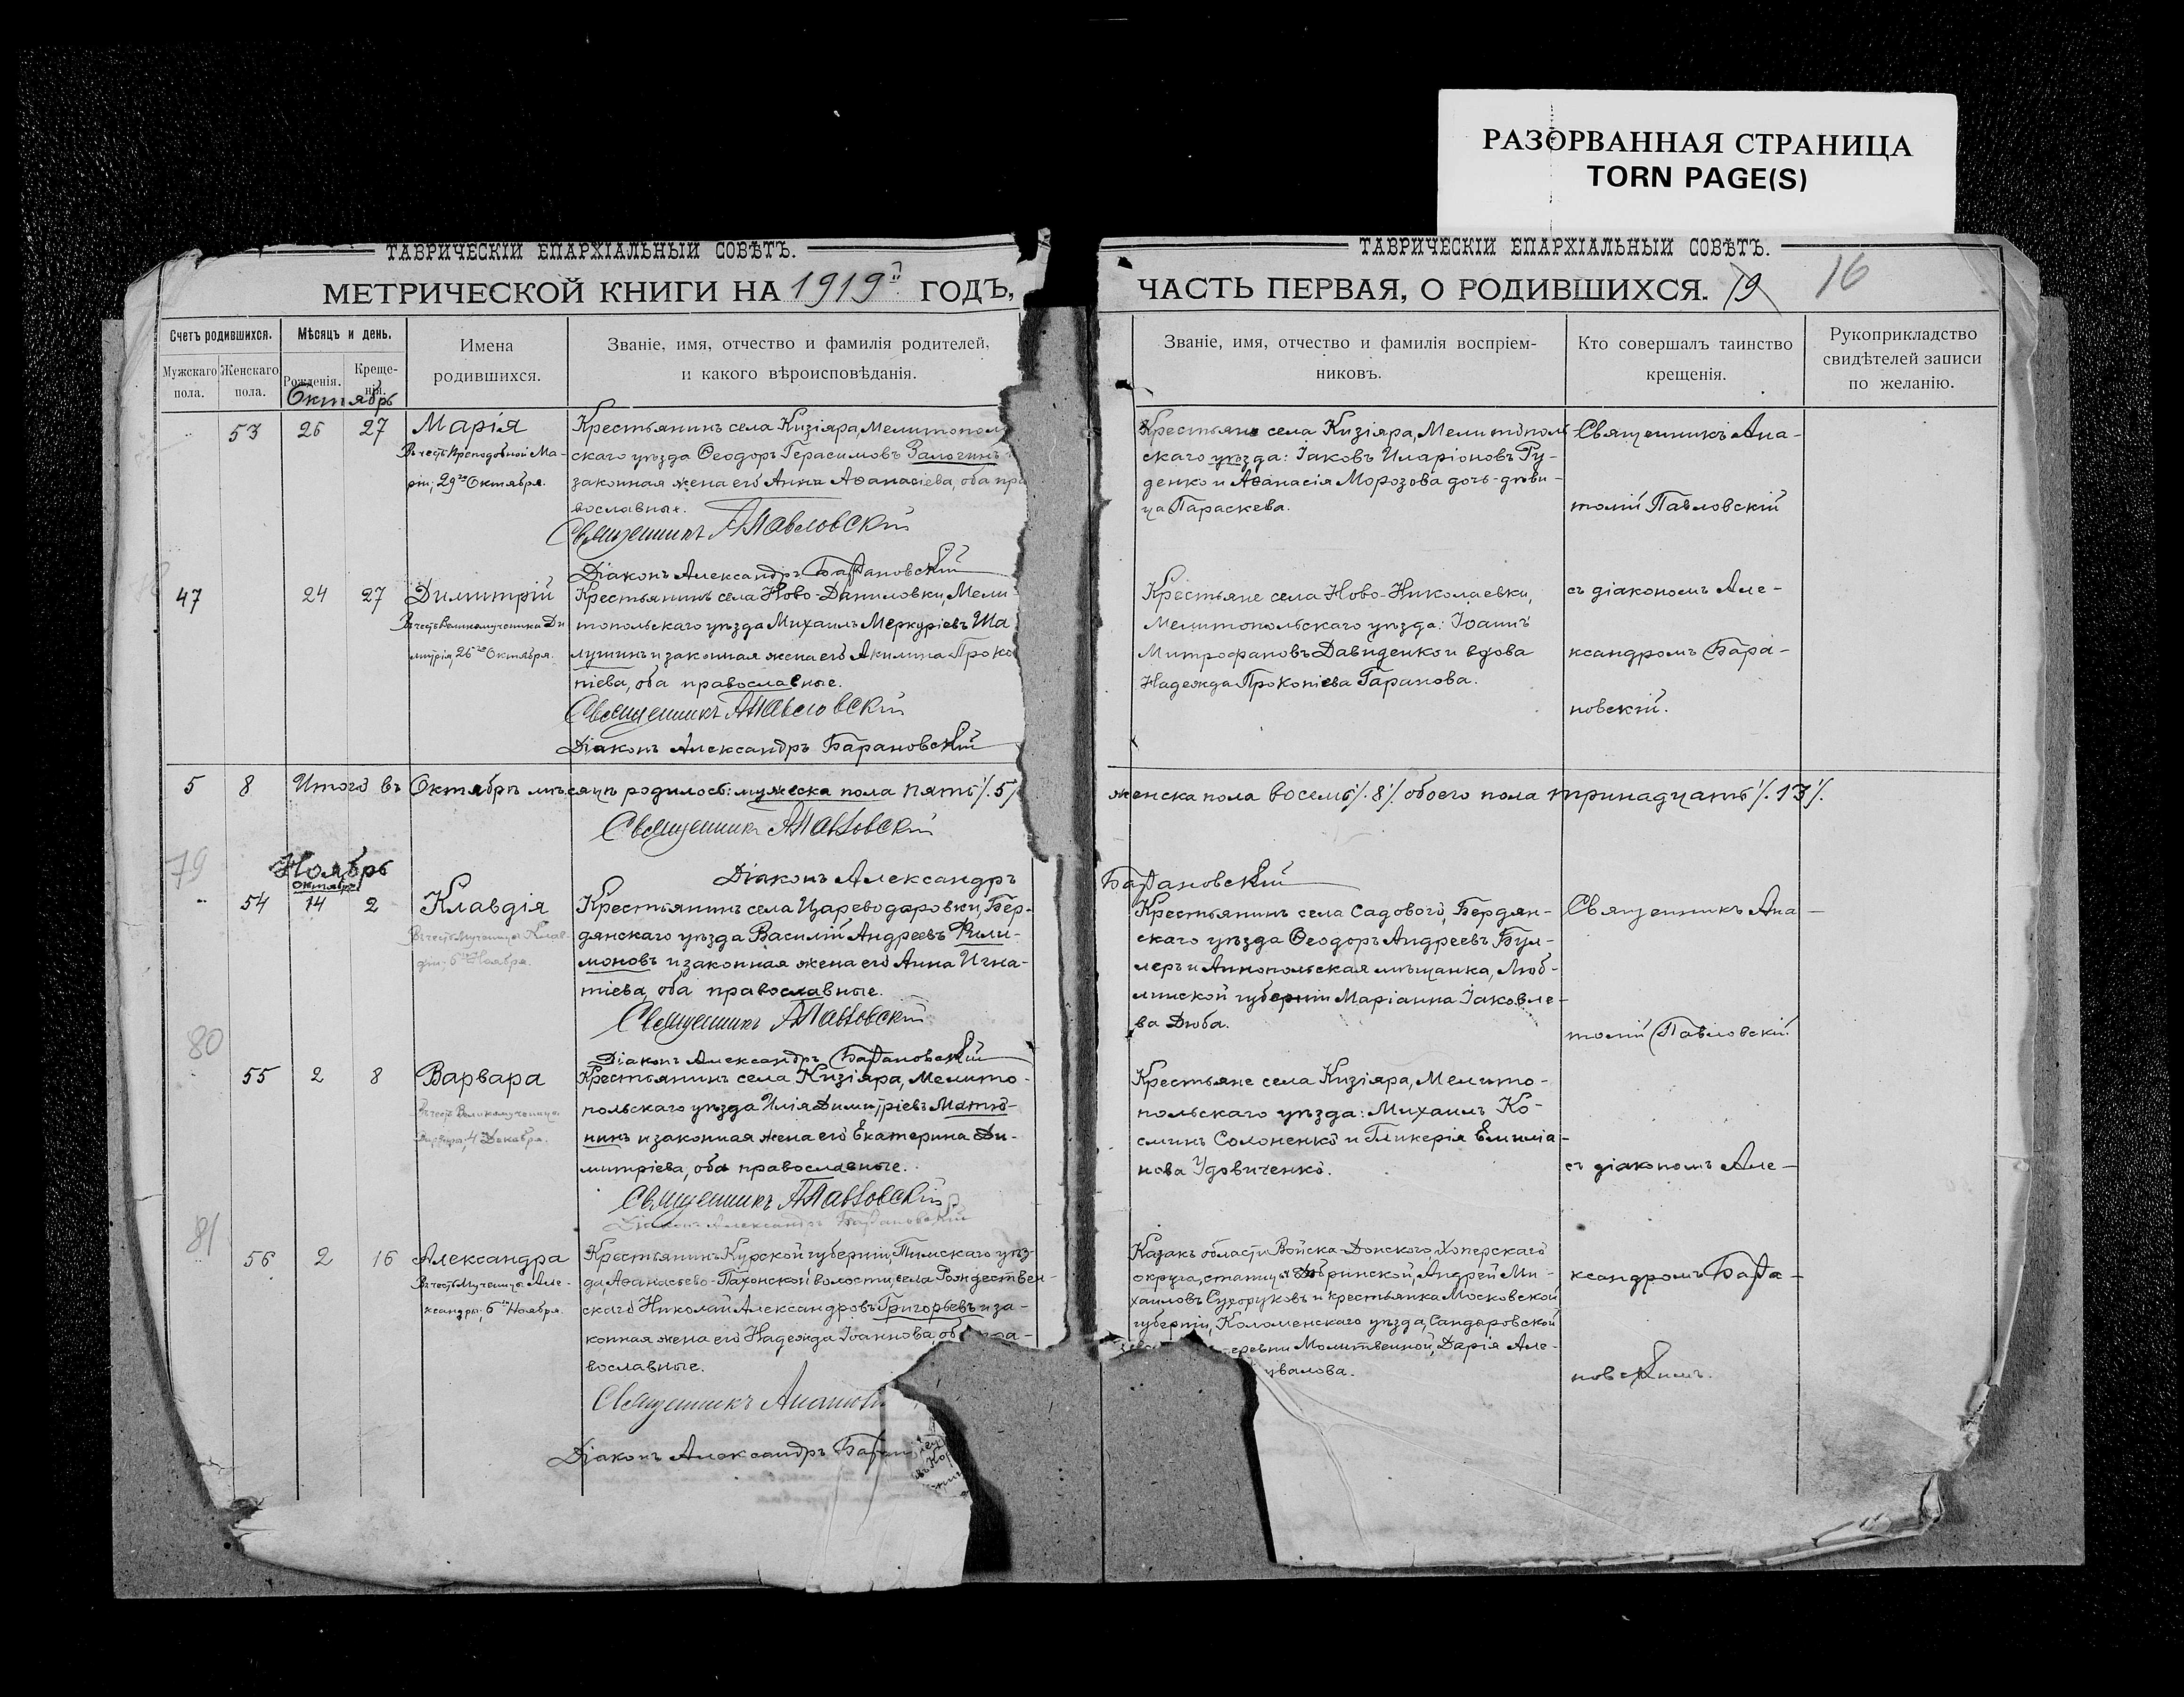 РАЗОРВАННАЯ СТРАНИЦА
TORN PAGE(S)
ТАВРИЧЕСКІЙ ЕПАРХІАЛЬНЫЙ СОВѢТЪ.
МЕТРИЧЕСКОЙ КНИГИ НА 1919й ГОДЪ,
Счетъ родившихся.
Мужскаго пола.
Женскаго пола.
Мѣсяцъ и день.
Рожденія.
Креще-
нія.
Имена
родившихся.
Званіе, имя, отчество и фамилія родителей,
и какого вѣроисповѣданія.
Октябрь
53 26 27 Марія
Въ честь Преподобной Ма-
ріи; 29го Октября.
Крестьянинъ села Кизіяра, Мелитополь
скаго уѣзда Ѳеодоръ Герасимовъ Залогинъ
законная жена его Анна Аѳанасіева, оба пра
вославные.
Священникъ АПавловскій
Діаконъ Александръ Барановскій
47 24 27 Димитрій
Въ честь Великомученика Ди
митрія, 26го Октября.
Крестьянинъ села Ново-Даниловки, Мели
топольскаго уѣзда Михаилъ Меркуріевъ Ша
лушинъ и законная жена его Акилина Проко
піева, оба православные.
Священникъ АПавловскій
Діаконъ Александръ Барановскій
5 8 Итого въ Октябрѣ мѣсяцѣ родилось: мужеска пола пять /. 5 /
Священникъ АПавловскій
Діаконъ Александръ
79
Ноябрь
Октября
54 14 2 Клавдія
Въ честь Мученицы Клав-
діи 6го Ноября.
Крестьянинъ села Цареводаровки, Бер-
дянскаго уѣзда Василій Андреевъ Фили-
моновъ и законная жена его Анна Игна-
тіева, оба православные.
Священникъ АПавловскій
Діаконъ Александръ Барановскій
80
55 2 8 Варвара
Въ честь Великомученицы
Варвары, 4 Декабря.
Крестьянинъ села Кизіяра, Мелито-
польскаго уѣзда Илія Димитріевъ Матю-
нинъ и законная жена его Екатерина Ди-
митріева, оба православные.
Священникъ АПавловскій
Діаконъ Александръ Барановскій
81
56 2 16 Александра
Въ честь Мученицы Але-
ксандры; 6го Ноября.
Крестьянинъ Курской губерніи, Тимскаго уѣз-
да, Аѳанасьево-Пахонской волости, села Рождествен-
скаго Николай Александровъ Григорьевъ и за-
конная жена его Надежда Іоаннова, об пра-
вославные.
Священникъ Анатолі
Діаконъ Александръ Баран
ТАВРИЧЕСКІЙ ЕПАРХІАЛЬНЫЙ СОВѢТЪ.
ЧАСТЬ ПЕРВАЯ, О РОДИВШИХСЯ. 19 16
Званіе, имя, отчество и фамилія воспріем-
никовъ.
Кто совершалъ таинство
крещенія.
Рукоприкладство
свидѣтелей записи
по желанію.
Крестьяне села Кизіяра, Мелитополь
скаго уѣзда: Іаковъ Иларіоновъ Ру-
денко и Аѳанасія Морозова дочь-дѣви-
ца Параскева.
Священникъ Ана-
толій Павловскій
Крестьяне села Ново-Николаевки,
Мелитопольскаго уѣзда: Іоаннъ
Митрофановъ Давиденко и вдова
Надежда Прокопіева Гаранова.
съ діакономъ Але-
ксандромъ Бара-
новскій.
женска пола восемь /. 8 /. обоего пола тринадцать /. 13 /.
Барановскій
Крестьянинъ села Садового, Бердян-
скаго уѣзда Ѳеодоръ Андреевъ Бул-
леръ и Аннопольская мѣщанка, Люб-
линской губерніи Маріанна Іаковле-
ва Дюба.
Священникъ Ана-
толій Павловскій.
Крестьяне села Кизіяра, Мелито-
польскаго уѣзда: Михаилъ Ко-
сминъ Солоненко и Гликерія Емиліа-
нова Удовиченко.
съ діакономъ Але-
Казакъ области Войска-Донского, Хоперскаго
округа, станицы Добринской, Андрей Ми-
хаиловъ Сухоруковъ и крестьянка Московской
губерніи, Коломенскаго уѣзда, Сандыровской
еревни Молитвенной, Дарія Але-
увалова.
ксандромъ Бара-
новскимъ.